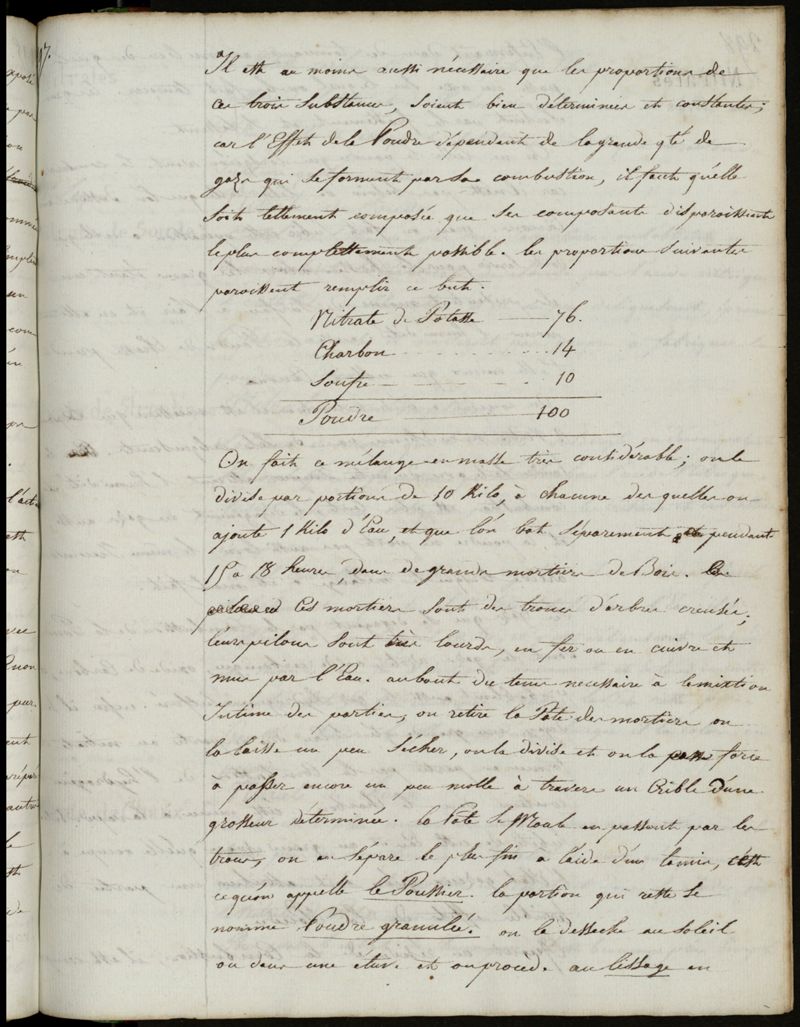 Il est au moins aussi nécessaire que les proportions de
ces trois substances, soient bien déterminées et constantes;
car l'Effet de la Poudre dépendant de la grande qté de
gazs qui se forment par sa combustion, il faut qu'elle
soit tellement composée que ses composants disparoissent
le plus complettement possible. les proportions suivantes
paroissent remplir ce but.
Nitrate de Potasse 76.
Charbon 14
Soufre 10
Poudre 100
On fait ce mélange en masse très considérable; on le
divise par portions de 10 Kilo, à chacune des quelles on
ajoute 1 Kilo d'Eau, et que l'on bat séparement pendant
15 a 18 heures, dans de grands mortiers de Bois.
Ces mortiers sont des troncs d'arbres creusés;
leurs pilons sont très lourds, en fer ou en cuivre et
mus par l'Eau. au bout du tems necessaire à la mixtion
Intime des parties, on retire la Pâte des mortiers on
la laisse un peu sécher, on la divise et on la force
à passer encore un peu molle à travers un Crible d'une
grosseur déterminée. la Pâte se Moule en passant par les
trous, on en sépare le plus fin a l'aide d'un tamis, c'est
ce qu'on appelle le Poussier. la portion qui reste se
nomme Poudre granulée. on la desseche au soleil
ou dans une étuve et on procede au lissage en